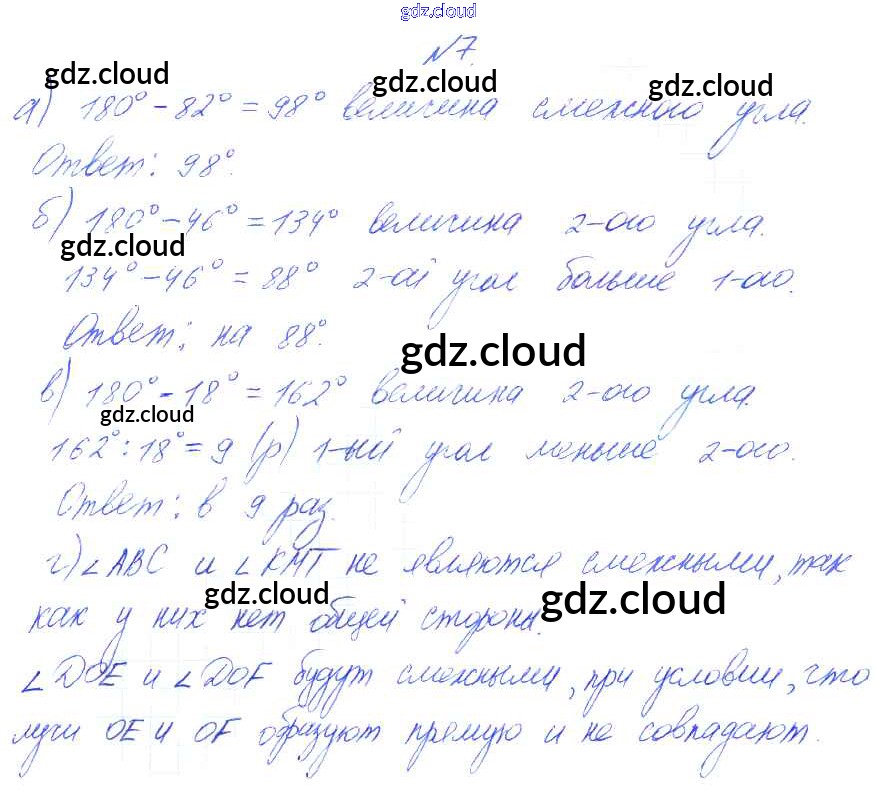 gdz.cloud
№7.
gdz.cloud gdz.cloud gdz.cloud
а) 180° - 82° = 98° величина смежного угла.
Ответ: 98°.
б) 180° - 46° = 134° величина 2-ого угла.
gdz.cloud
134° - 46° = 88° 2-ой угол больше 1-ого.
Ответ: на 88°.
gdz.cloud
в) 180° - 18° = 162° величина 2-ого угла.
gdz.cloud
162° : 18° = 9 (р) 1-ый угол меньше 2-ого.
Ответ: в 9 раз.
г) ∠ABC и ∠KMT не являются смежными, так
gdz.cloud gdz.cloud
как у них нет общей стороны.
∠DOE и ∠DOF будут смежными, при условии, что
лучи OE и OF образуют прямую и не совпадают.